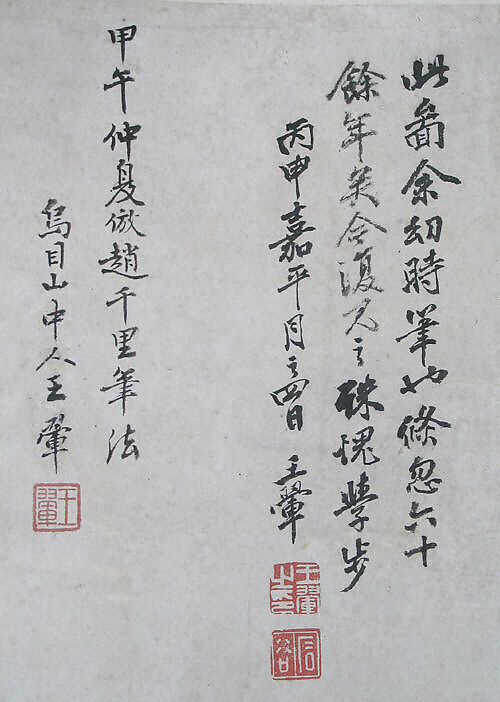 此啚余幼時筆也倏忽六十
餘年矣今復見之殊愧學步
丙申嘉平月之四日 王翬
王翬之印
石谷
甲午仲夏倣趙千里筆法
烏目山中人王翬
王翬